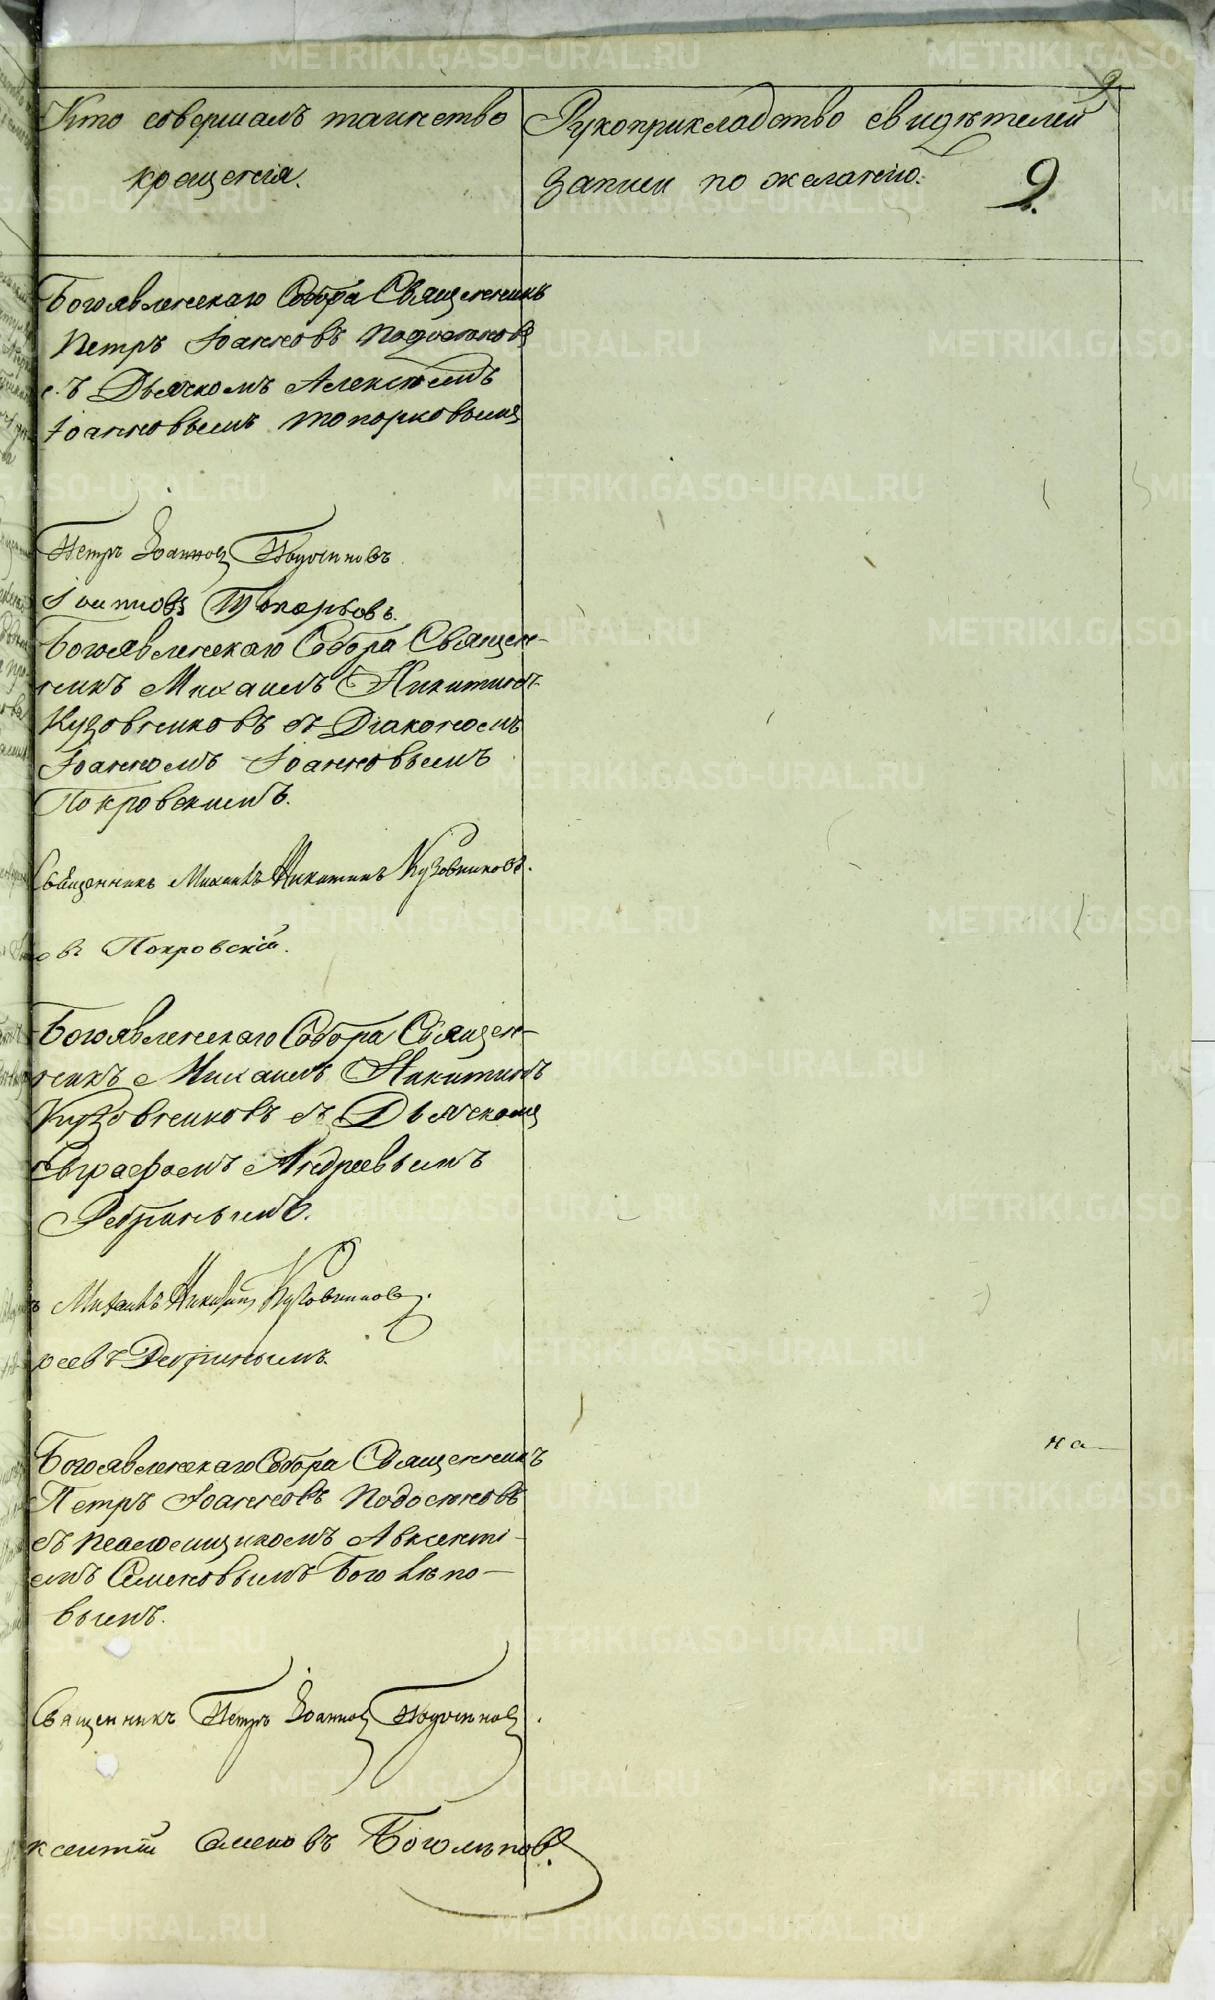 9
Кто совершалъ таинство
крещенія.
Рукоприкладство свидѣтелей
записи по желанію.
9.
Богоявленскаго Собора Священникъ
Петръ Іоанновъ
съ Дьячкомъ Алексѣемъ
Іоанновымъ Топорковымъ
Петръ Іоанновъ
Іоанновъ Топорковъ.
Богоявленскаго Собора Священ-
никъ Михаилъ Никитинъ
Кузовниковъ съ Діакономъ
Іоанномъ Іоанновымъ
Покровскимъ.
Священникъ Михаилъ Никитинъ Кузовниковъ.
овъ Покровскій.
Богоявленскаго Собора Священ-
никъ Михаилъ Никитинъ
Кузовниковъ съ Дьячкомъ
Евграфомъ Андреевымъ
Ребринымъ.
ъ Михаилъ Никитинъ Кузовниковъ.
реевъ Ребринымъ.
на
Богоявленскаго Собора Священникъ
Петръ Іоанновъ
съ Псаломщикомъ Авксенті-
емъ Семеновымъ Боголѣпо-
вымъ.
Священникъ Петръ Іоанновъ
ксентій Семеновъ Боголѣповъ.
METRIKI.GASO-URAL.RU